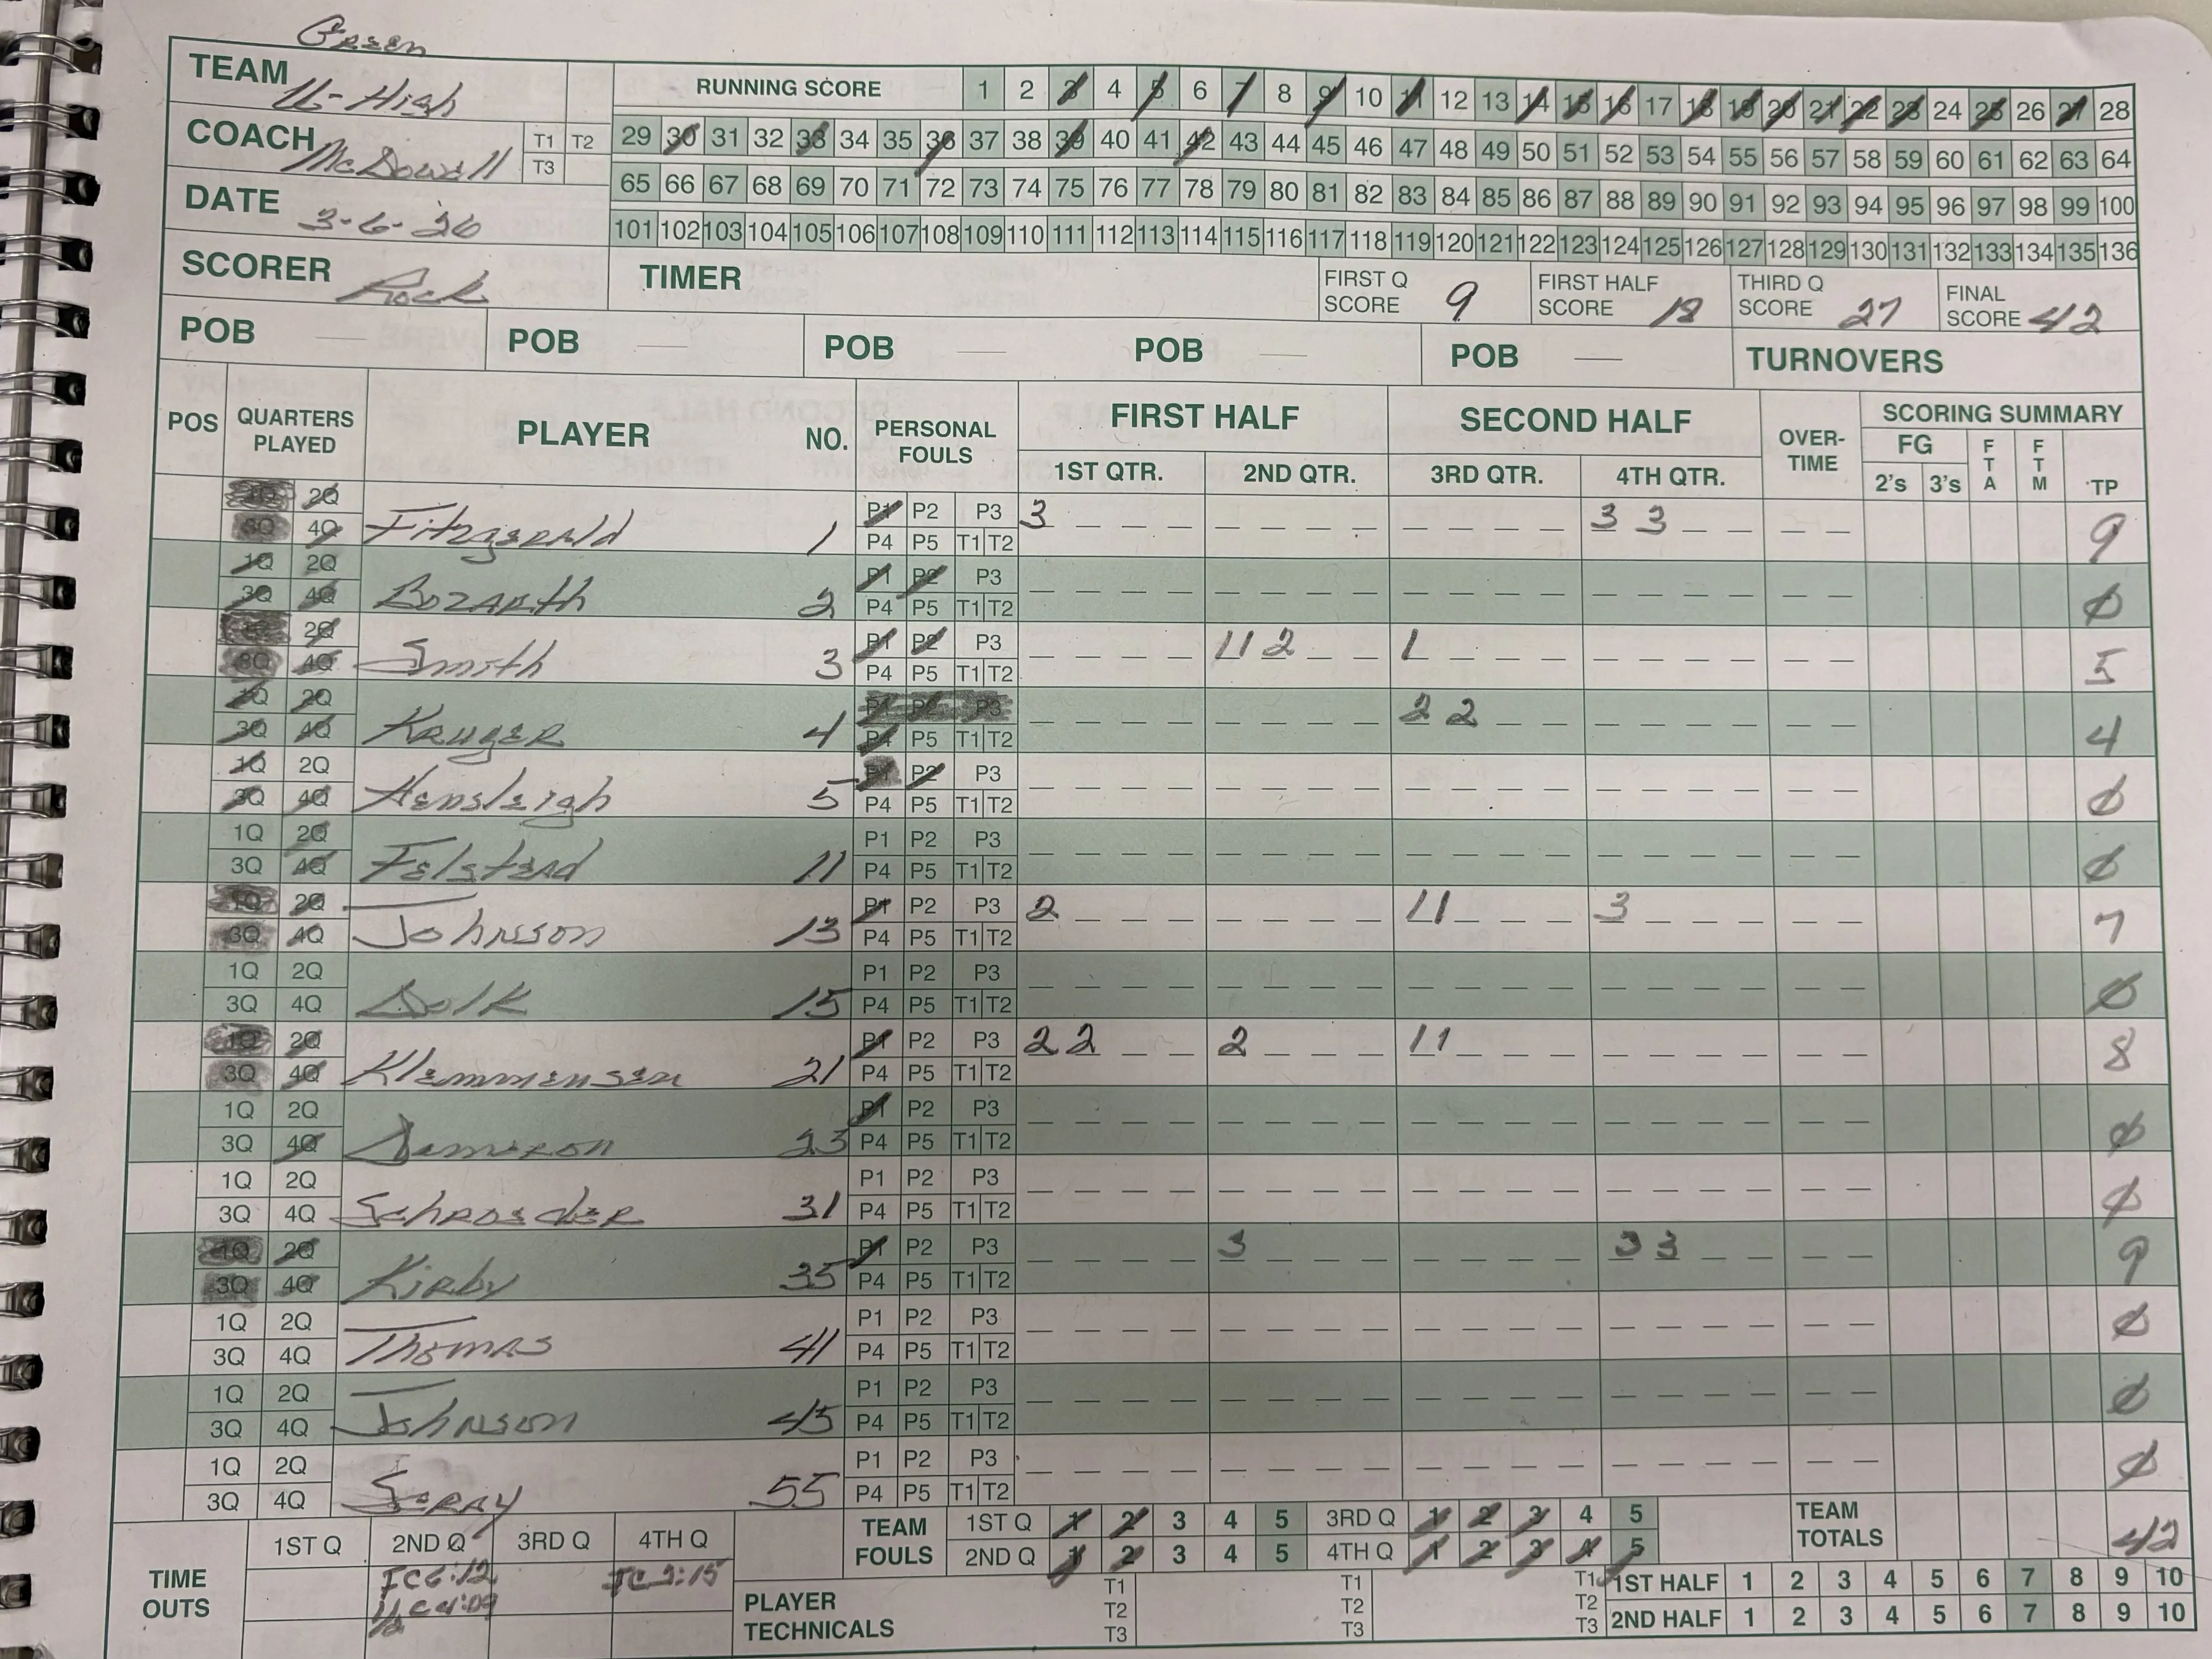 Green
TEAM U-High
RUNNING SCORE 1 2 3 4 5 6 7 8 9 10 11 12 13 14 15 16 17 18 19 20 21 22 23 24 25 26 27 28
COACH McDowell T1 T2 T3
29 30 31 32 33 34 35 36 37 38 39 40 41 42 43 44 45 46 47 48 49 50 51 52 53 54 55 56 57 58 59 60 61 62 63 64
65 66 67 68 69 70 71 72 73 74 75 76 77 78 79 80 81 82 83 84 85 86 87 88 89 90 91 92 93 94 95 96 97 98 99 100
DATE 3-6-26
101 102 103 104 105 106 107 108 109 110 111 112 113 114 115 116 117 118 119 120 121 122 123 124 125 126 127 128 129 130 131 132 133 134 135 136
SCORER Rock TIMER FIRST Q SCORE 9 FIRST HALF SCORE 18 THIRD Q SCORE 27 FINAL SCORE 42
POB POB POB POB POB TURNOVERS
POS QUARTERS PLAYED PLAYER NO. PERSONAL FOULS FIRST HALF SECOND HALF OVER-TIME SCORING SUMMARY
1ST QTR. 2ND QTR. 3RD QTR. 4TH QTR. FG 2's 3's FTA FTM TP
1Q 2Q P1 P2 P3 3 3 3
3Q 4Q Fitzgerald 1 P4 P5 T1 T2 9
1Q 2Q P1 P2 P3
3Q 4Q Bozarth 2 P4 P5 T1 T2 0
1Q 2Q P1 P2 P3 1 1 2 1
3Q 4Q Smith 3 P4 P5 T1 T2 5
1Q 2Q P1 P2 P3 2 2
3Q 4Q Kruger 4 P4 P5 T1 T2 4
1Q 2Q P1 P2 P3
3Q 4Q Hensleigh 5 P4 P5 T1 T2 0
1Q 2Q P1 P2 P3
3Q 4Q Felstead 11 P4 P5 T1 T2 0
1Q 2Q P1 P2 P3 2 1 1 3
3Q 4Q Johnson 13 P4 P5 T1 T2 7
1Q 2Q P1 P2 P3
3Q 4Q 15 P4 P5 T1 T2 0
1Q 2Q P1 P2 P3 2 2 2 1 1
3Q 4Q Klemmensen 21 P4 P5 T1 T2 8
1Q 2Q P1 P2 P3
3Q 4Q Dameron 23 P4 P5 T1 T2 0
1Q 2Q P1 P2 P3
3Q 4Q Schroeder 31 P4 P5 T1 T2 0
1Q 2Q P1 P2 P3 3 3 3
3Q 4Q Kirby 35 P4 P5 T1 T2 9
1Q 2Q P1 P2 P3
3Q 4Q Thomas 41 P4 P5 T1 T2 0
1Q 2Q P1 P2 P3
3Q 4Q Johnson 45 P4 P5 T1 T2 0
1Q 2Q P1 P2 P3
3Q 4Q 55 P4 P5 T1 T2 0
TEAM FOULS 1ST Q 1 2 3 4 5 3RD Q 1 2 3 4 5 TEAM TOTALS 42
2ND Q 1 2 3 4 5 4TH Q 1 2 3 4 5
TIME OUTS 1ST Q 2ND Q 3RD Q 4TH Q
PLAYER TECHNICALS T1 T2 T3 T1 T2 T3 T1 T2 T3
1ST HALF 1 2 3 4 5 6 7 8 9 10
2ND HALF 1 2 3 4 5 6 7 8 9 10